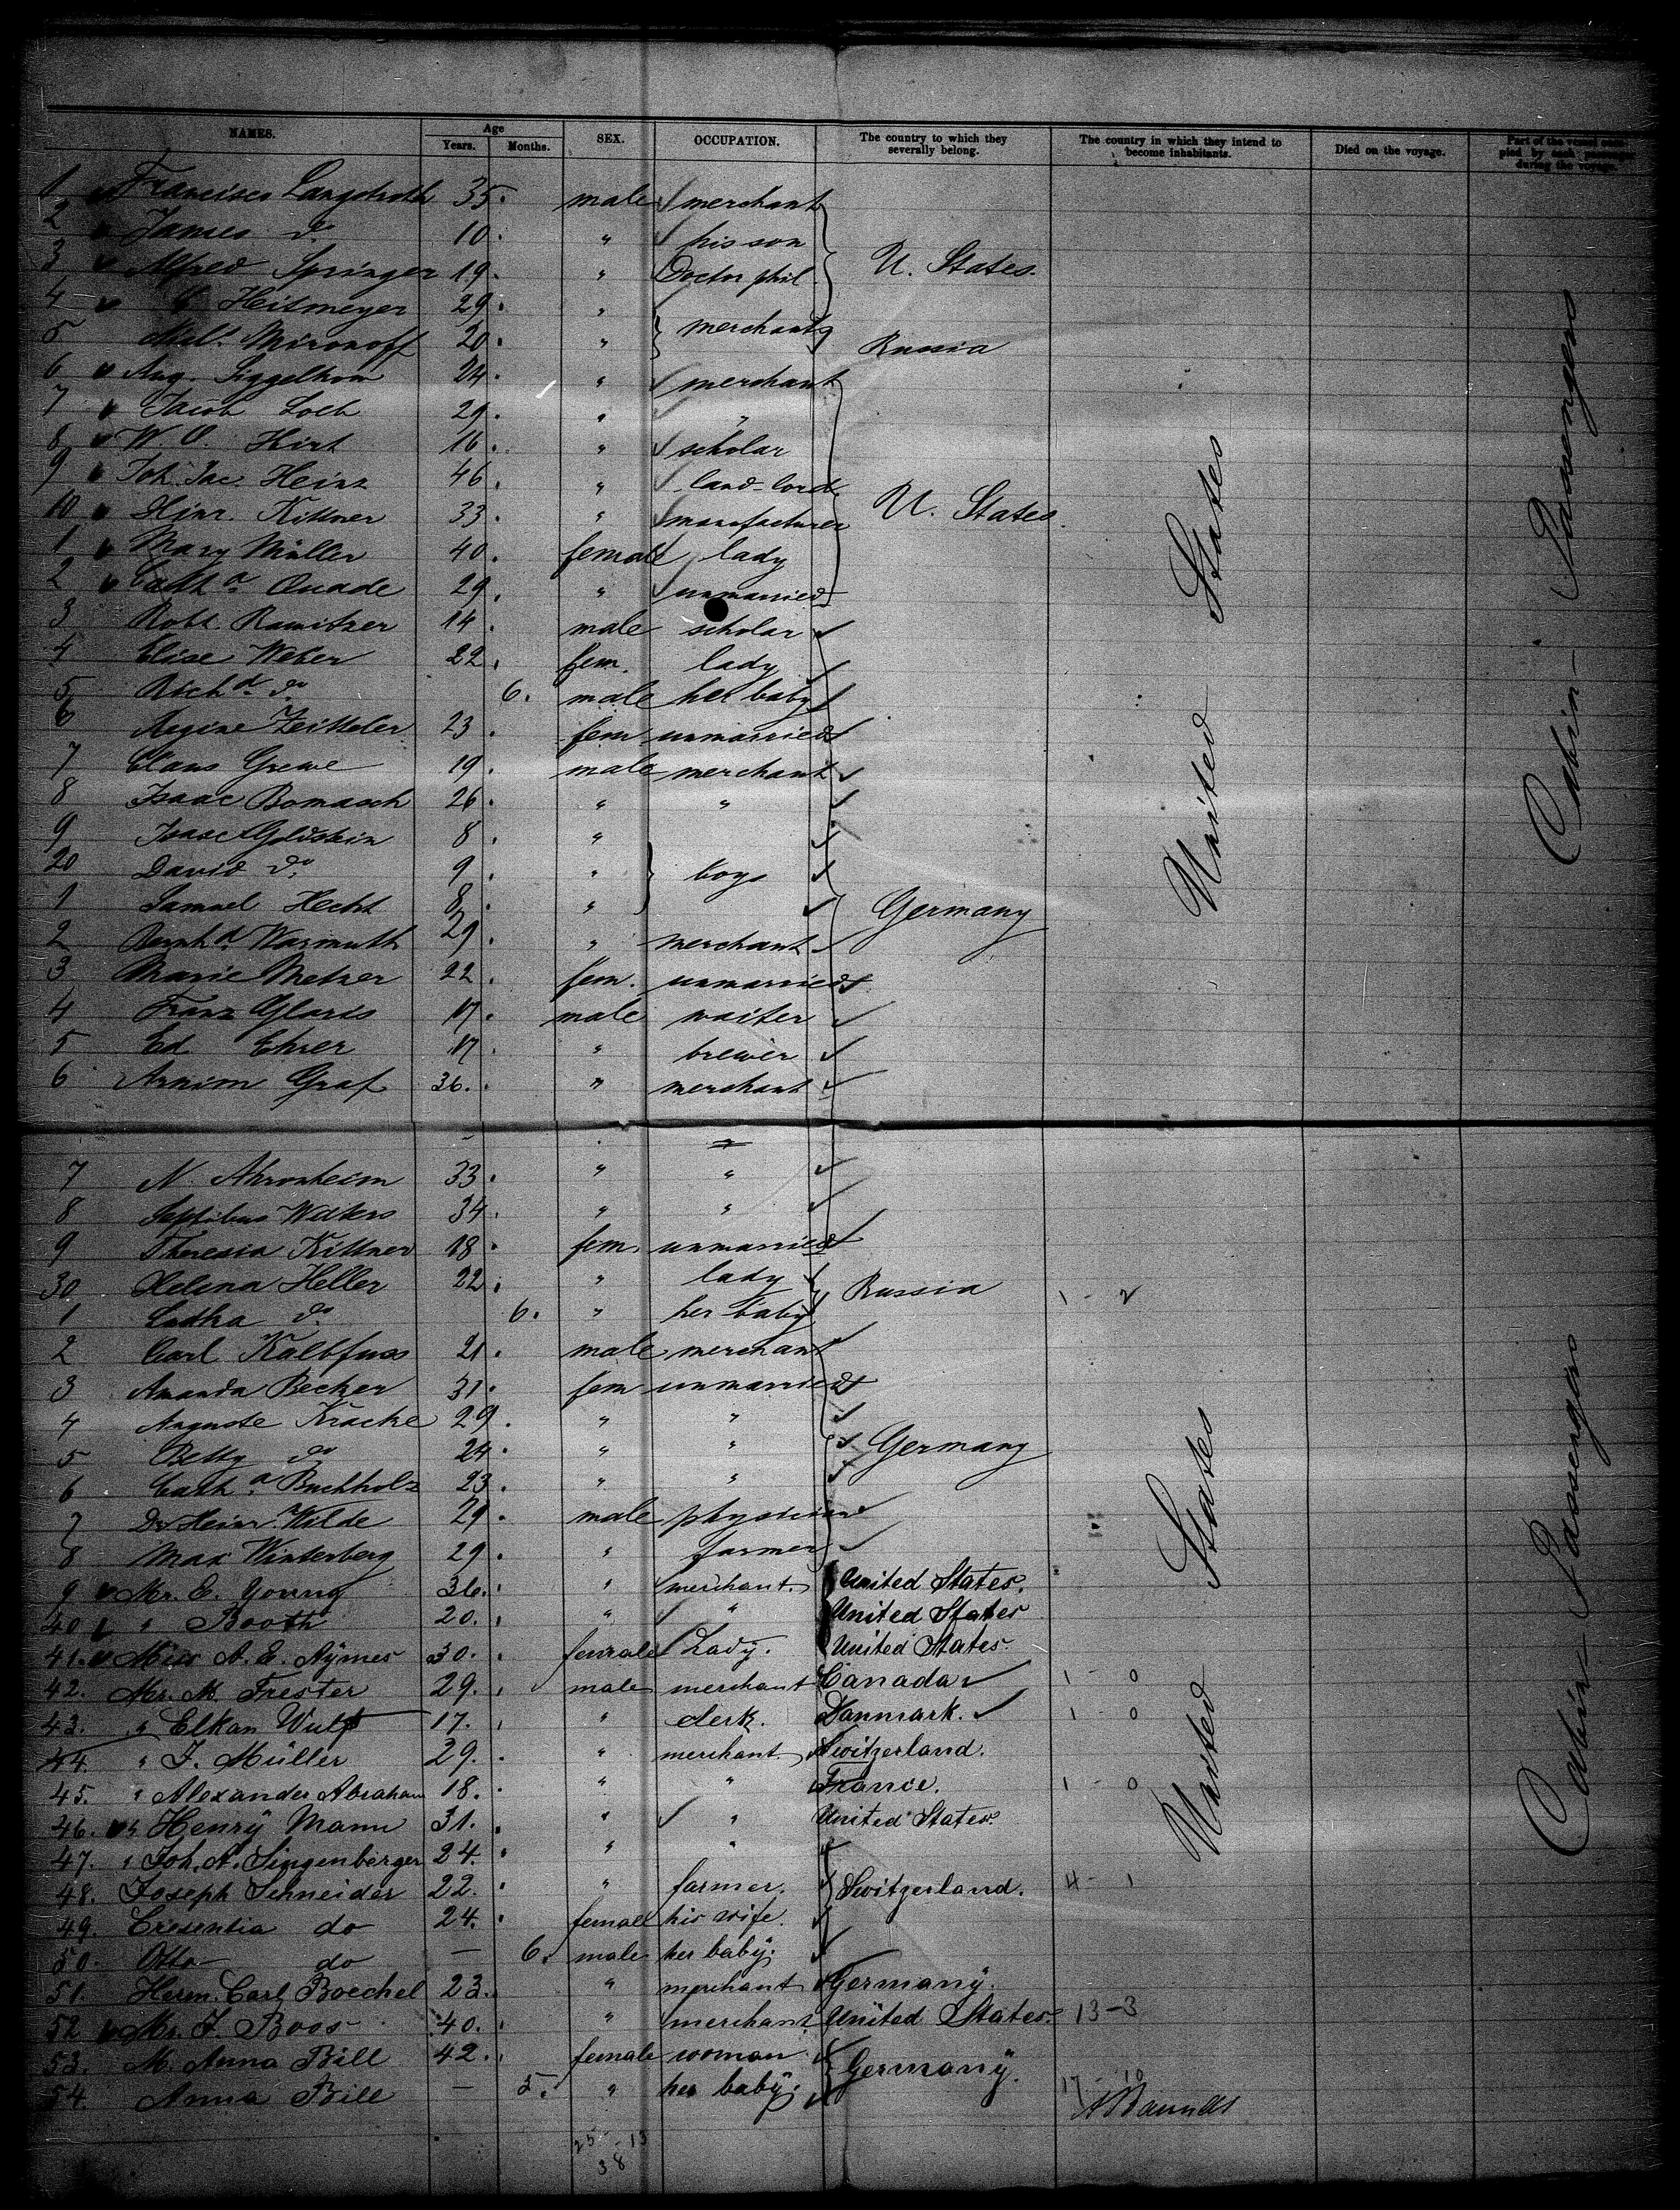 NAMES. Age Years. Months. SEX. OCCUPATION. The country to which they severally belong. The country in which they intend to become inhabitants. Died on the voyage. Part of the vessel occupied by each passenger during the voyage.
1 Francisco Langstroth 35. male merchant
2 James do 10. " his son
3 Alfred Springer 19. " Doctor phil. U. States.
4 Heitmeyer 29. "
5 Mironoff 20. " merchants Russia
6 Aug. Siggelkow 24. " merchant
7 Jacob Loeb 29. " "
8 W. O. Hirt 16. " scholar
9 Joh. Jac. Heinz 46. " land-lord
10 Hinr. Kittner 33. " manufacturer U. States.
1 Mary Müller 40. female lady
2 Cath.a Quade 29. " unmarried
3 Robt. Ramitzer 14. male scholar
4 Elise Weber 22. fem. lady
5 Richd. do 6. male her baby
6 Regine Zeitteler 23. fem unmarried
7 Claus Grewe 19. male merchant
8 Isaac Bomasch 26. " "
9 Isaac Goldstein 8. "
20 David do 9. " boys
1 Samuel Hecht 8. " Germany
2 Bernhd. Warmuth 29. " merchant
3 Marie Metzer 22. fem. unmarried
4 Franz Glaris 17. male waiter
5 Ed Ehrer 17. " brewer
6 Armim Graf 36. " merchant
7 N. Ahronheim 33. " "
8 Wolters 34. " "
9 Theresia Kittner 18. fem. unmarried
30 Helena Heller 22. " lady Russia 1 - 2
1 do 6. " her baby
2 Carl Kalbfuss 21. male merchant
3 Amanda Becker 31. fem unmarried
4 Auguste Kracke 29. " "
5 Betty do 24. " " Germany
6 Cath.a Buchholz 23. " "
7 Dr Heinr. Wilde 29. male physician
8 Max Winterberg 29. " farmer
9 Mr. E. Young 36. " merchant. United States.
40 " Booth 20. " " United States
41. Miss A. E. Aymes 30. female Lady. United States
42. Mr. M. Frester 29. male merchant Canada 1 - 0
43. " Elkan Wulff 17. " clerk. Danmark. 1 - 0
44. " J. Müller 29. " merchant. Switzerland.
45. " Alexander Abraham 18. " " France. 1 - 0
46. " Henry Mann 31. " " United States.
47. " Joh. A. Singenberger 24. " "
48. Joseph Schneider 22. " farmer. Switzerland. 4 - 1
49. Cresentia do 24. female his wife.
50. Otto do — 6. male her baby.
51. Herm. Carl Boechel 23. " merchant Germany.
52 Mr. J. Boos 40. " merchant United States. 13-3
53. M. Anna Bill 42. female woman Germany.
54. Anna Bill — 5. " her baby. 17 - 10
25 - 13
38
United States
United States
Cabin - Passengers
Cabin - Passengers